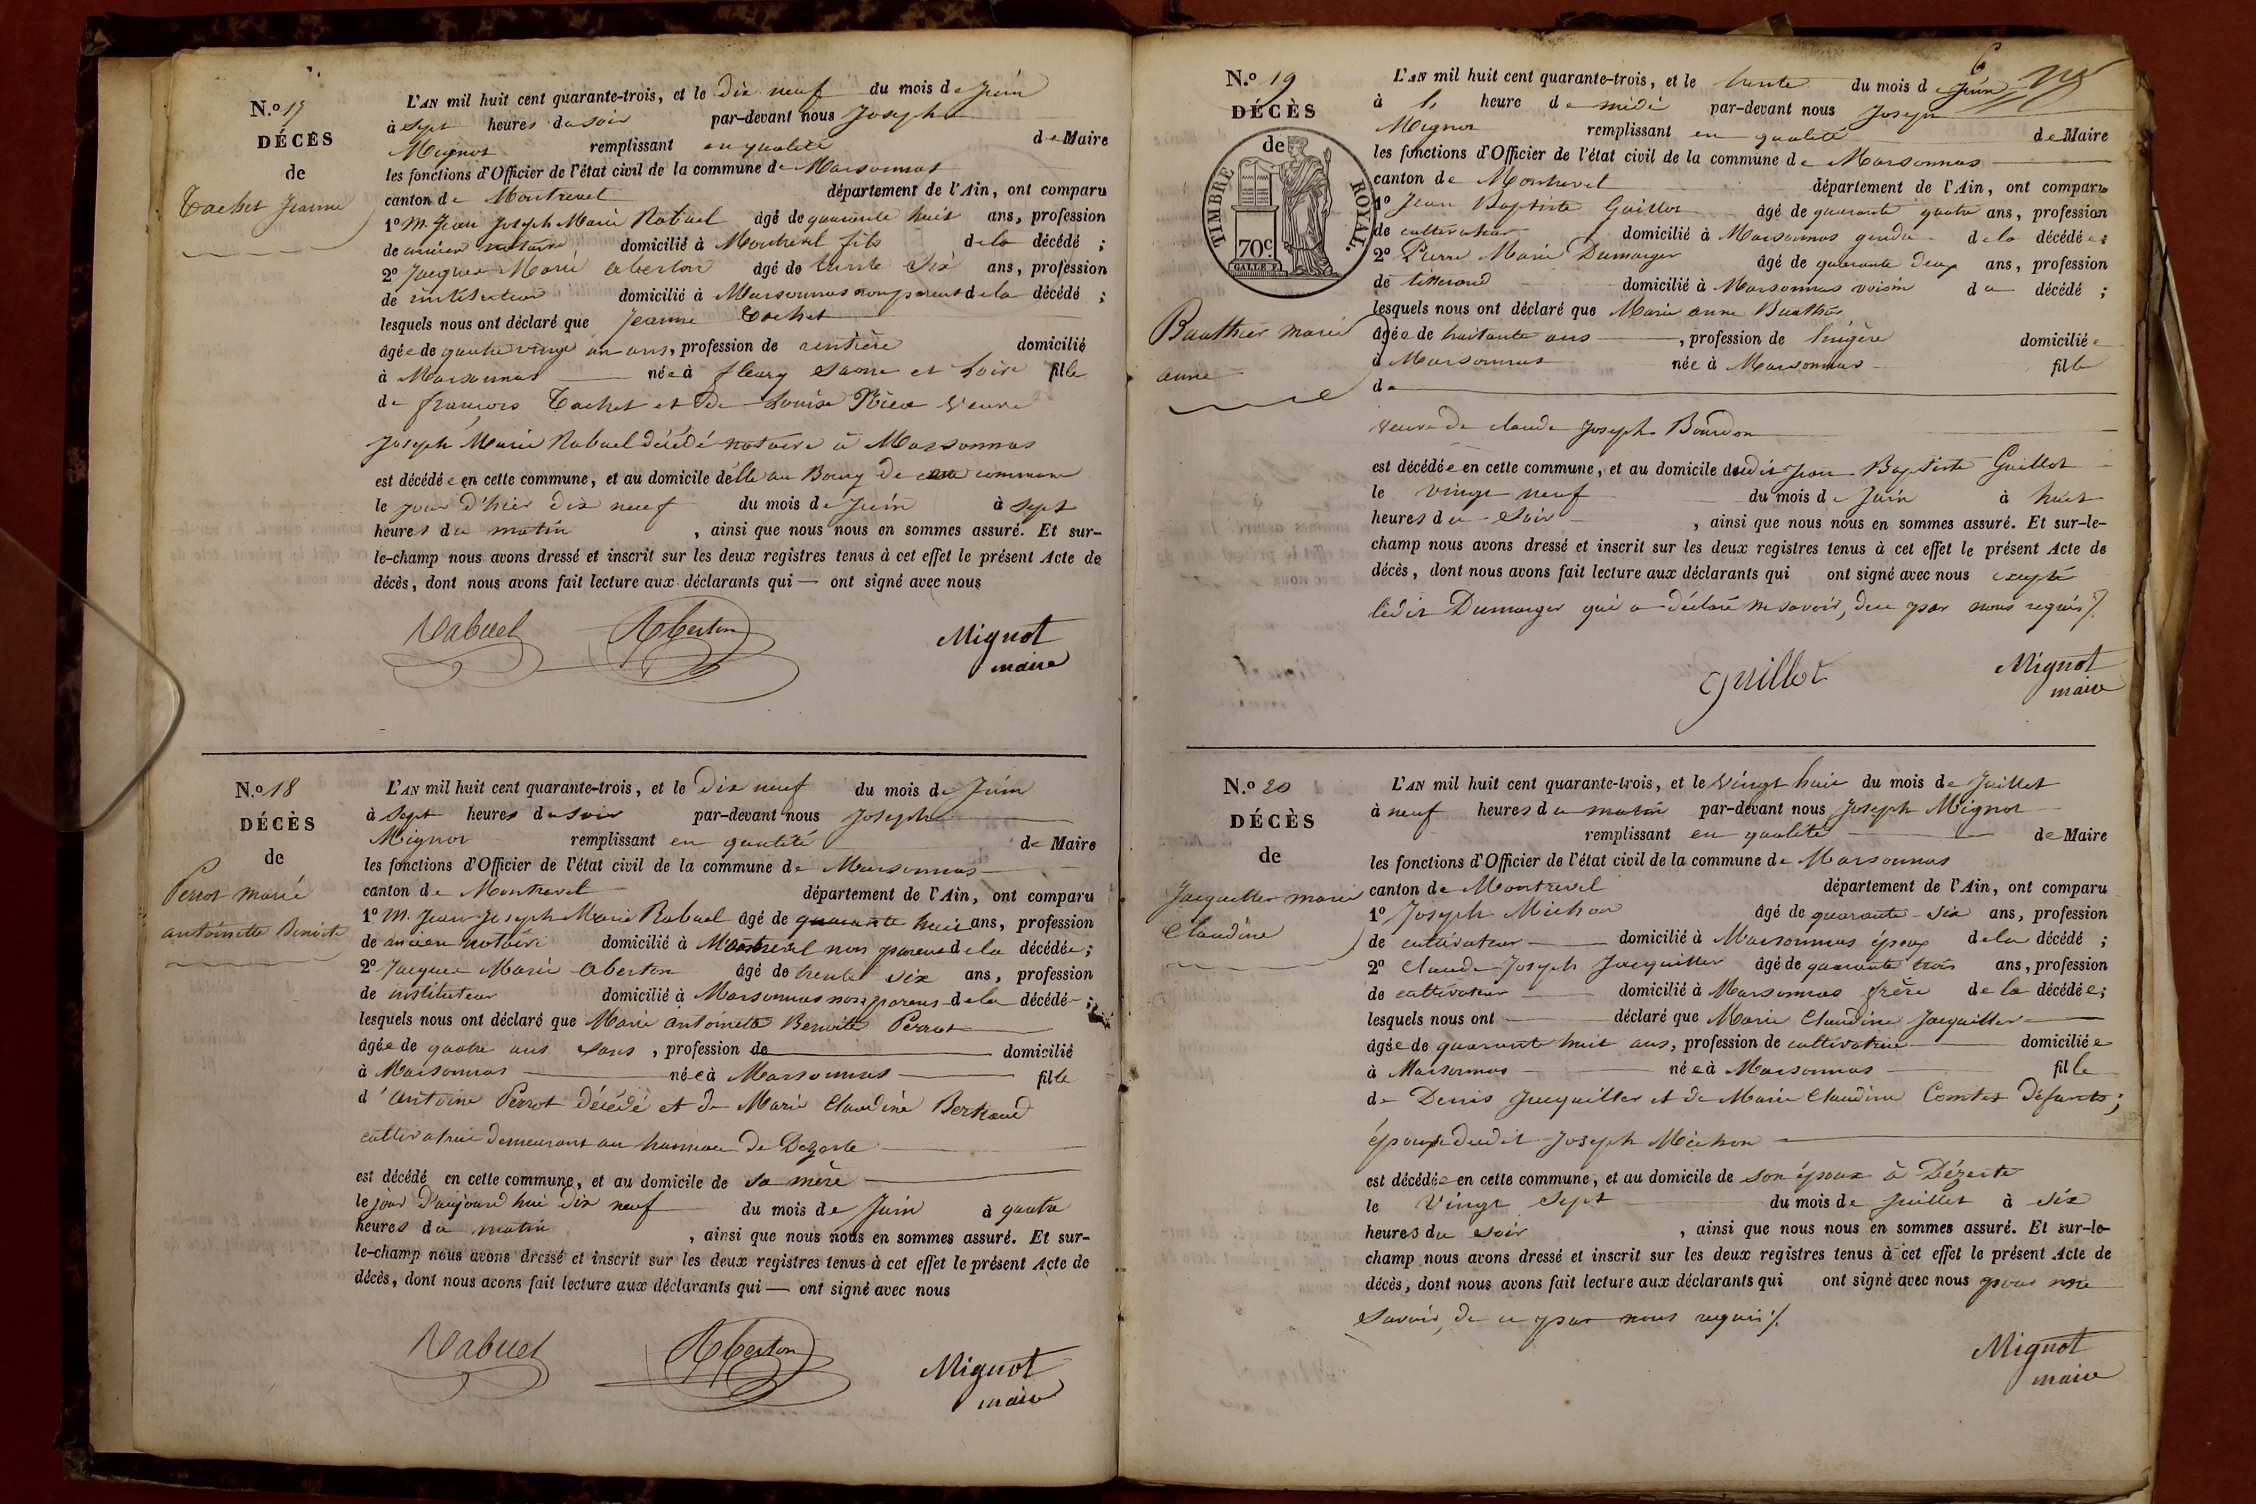 N.o 17
DÉCÈS
de
Tachet Jeanne
L'AN mil huit cent quarante-trois, et le Dix neuf du mois de Juin
à Sept heures du soir par-devant nous Joseph
Mignot remplissant en qualité de Maire
les fonctions d'Officier de l'état civil de la commune de Marsonnas
canton de Montrevel département de l'Ain, ont comparu
1o M. Jean Joseph Marie Rabuel âgé de quarante huit ans, profession
de ancien notaire domicilié à Montrevel fils de la décédé ;
2o Jacques Marie Aberton âgé de trente Six ans, profession
de instituteur domicilié à Marsonnas non parent de la décédé ;
lesquels nous ont déclaré que Jeanne Tachet
âgée de quatre vingt un ans, profession de rentière domicilié
à Marsonnas née à fleury Saone et Loire fille
de françois Tachet et de Louise veuve
Joseph Marie Rabuel décédé notaire à Marsonnas
est décédée en cette commune, et au domicile d'elle au Bourg de commune
le jour d'hier dix neuf du mois de Juin à Sept
heures du matin, ainsi que nous nous en sommes assuré. Et sur-
le-champ nous avons dressé et inscrit sur les deux registres tenus à cet effet le présent Acte de
décès, dont nous avons fait lecture aux déclarants qui — ont signé avec nous
Rabuel Aberton Mignot
maire
N.o 18
DÉCÈS
de
Perrot Marie
antoinette Benoite
L'AN mil huit cent quarante-trois, et le Dix neuf du mois de Juin
à Sept heures du soir par-devant nous Joseph
Mignot remplissant en qualité de Maire
les fonctions d'Officier de l'état civil de la commune de Marsonnas
canton de Montrevel département de l'Ain, ont comparu
1o M. Jean Joseph Marie Rabuel âgé de quarante huit ans, profession
de ancien notaire domicilié à Montrevel non parent de la décédée ;
2o Jacques Marie Aberton âgé de trente Six ans, profession
de instituteur domicilié à Marsonnas non parens de la décédé ;
lesquels nous ont déclaré que Marie antoinette Benoite Perrot
âgée de quatre ans Sans, profession de domicilié
à Marsonnas née à Marsonnas fille
d'Antoine Perrot Décédé et de Marie Claudine Bertraud
cultivatrice demeurant au hameau de Dezerte
est décédé en cette commune, et au domicile de Sa mère
le jour D'aujourd'hui dix neuf du mois de Juin à quatre
heures du matin, ainsi que nous nous en sommes assuré. Et sur-
le-champ nous avons dressé et inscrit sur les deux registres tenus à cet effet le présent Acte de
décès, dont nous avons fait lecture aux déclarants qui — ont signé avec nous
Rabuel Aberton Mignot
maire
6
N.o 19
DÉCÈS
de
TIMBRE ROYAL.
70c.
Bauthier marie
anne
L'AN mil huit cent quarante-trois, et le trente du mois de Juin
à heure de midi par-devant nous Joseph
Mignot remplissant en qualité de Maire
les fonctions d'Officier de l'état civil de la commune de Marsonnas
canton de Montrevel département de l'Ain, ont comparu
1o Jean Baptiste Guillot âgé de quarante quatre ans, profession
de cultivateur domicilié à Marsonnas gendre de la décédée ;
2o Pierre Marie Dumarger âgé de quarante deux ans, profession
de tisserand domicilié à Marsonnas voisin de décédé ;
lesquels nous ont déclaré que Marie anne Buathier
âgée de huitante ans, profession de lingère domiciliée
à Marsonnas née à Marsonnas fille
de
veuve de claude Joseph Bourdon
est décédée en cette commune, et au domicile dudit Jean Baptiste Guillot
le vingt neuf du mois de Juin à huit
heures du Soir, ainsi que nous nous en sommes assuré. Et sur-le-
champ nous avons dressé et inscrit sur les deux registres tenus à cet effet le présent Acte de
décès, dont nous avons fait lecture aux déclarants qui ont signé avec nous excepté
ledit Dumarger qui a déclaré ne savoir, de ce par nous requis ./.
Guillot Mignot
maire
N.o 20
DÉCÈS
de
Jacquiller marie
Claudine
L'AN mil huit cent quarante-trois, et le vingt huit du mois de Juillet
à neuf heures du matin par-devant nous Joseph Mignot
remplissant en qualité de Maire
les fonctions d'Officier de l'état civil de la commune de Marsonnas
canton de Montrevel département de l'Ain, ont comparu
1o Joseph Michon âgé de quarante Six ans, profession
de cultivateur domicilié à Marsonnas époux de la décédé ;
2o Claude Joseph Jacquiller âgé de quarante trois ans, profession
de cultivateur domicilié à Marsonnas frère de la décédée ;
lesquels nous ont déclaré que Marie Claudine Jacquiller
âgée de quarante huit ans, profession de cultivatrice domiciliée
à Marsonnas née à Marsonnas fille
de Denis Jacquiller et de Marie Claudine Comtet Défunts ;
épouse dudit Joseph Michon
est décédée en cette commune, et au domicile de son époux à Dézerte
le Vingt Sept du mois de Juillet à Six
heures du Soir, ainsi que nous nous en sommes assuré. Et sur-le-
champ nous avons dressé et inscrit sur les deux registres tenus à cet effet le présent Acte de
décès, dont nous avons fait lecture aux déclarants qui ont signé avec nous pour ne
Savoir, de ce par nous requis ./.
Mignot
maire